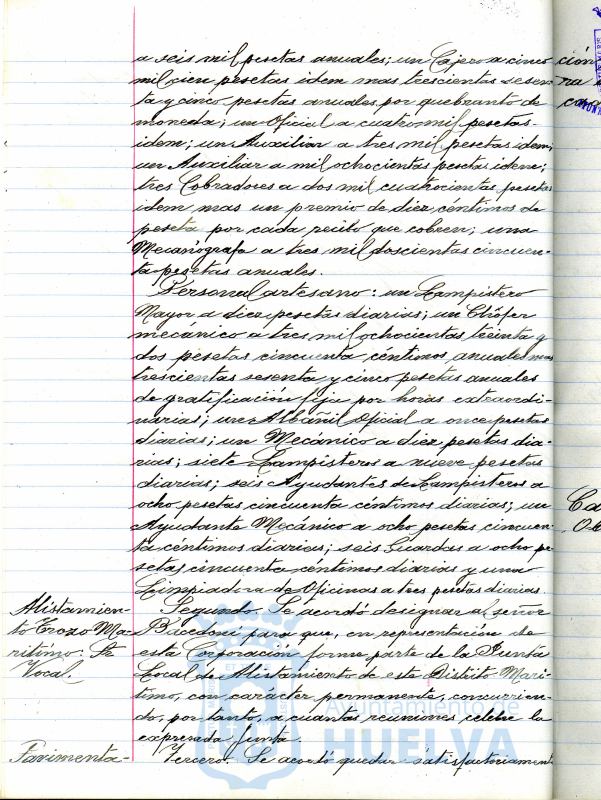 a seis mil pesetas anuales; un Cajero a cinco
mil cien pesetas idem mas trescientas sesen-
ta y cinco pesetas anuales por quebranto de
moneda; un Oficial a cuatro mil pesetas
idem; un Auxiliar a tres mil pesetas idem;
un Auxiliar a mil ochocientas pesetas idem;
tres Cobradores a dos mil cuatrocientas pesetas
idem mas un premio de diez céntimos de
peseta por cada recibo que cobren; una
Mecanógrafa a tres mil doscientas cincuen-
ta pesetas anuales.
Personal artesano: un Lampistero
Mayor a diez pesetas diarias; un Chófer
mecánico a tres mil ochocientas treinta y
dos pesetas cincuenta céntimos anuales mas
trescientas sesenta y cinco pesetas anuales
de gratificación fija por horas extraordi-
narias; un Albañil Oficial a once pesetas
diarias; un Mecánico a diez pesetas dia-
rias; siete Lampisteros a nueve pesetas
diarias; seis Ayudantes de Lampisteros a
ocho pesetas cincuenta céntimos diarias; un
Ayudante Mecánico a ocho pesetas cincuen-
ta céntimos diarias; seis Guardas a ocho pe-
setas cincuenta céntimos diarias y una
Limpiadora de Oficinas a tres pesetas diarias.
Alistamien-
to Trozo Ma-
rítimo.
Vocal.
Segundo. Se acordó designar al señor
para que, en representación de
esta Corporación forme parte de la Junta
Local de Alistamiento de este Distrito Marí-
timo, con carácter permanente, concurrien-
do, por tanto, a cuantas reuniones celebre la
expresada Junta.
Pavimenta-
Tercero. Se acordó quedar satisfactoriament
Ayuntamiento de
HUELVA
ción
na
Ca